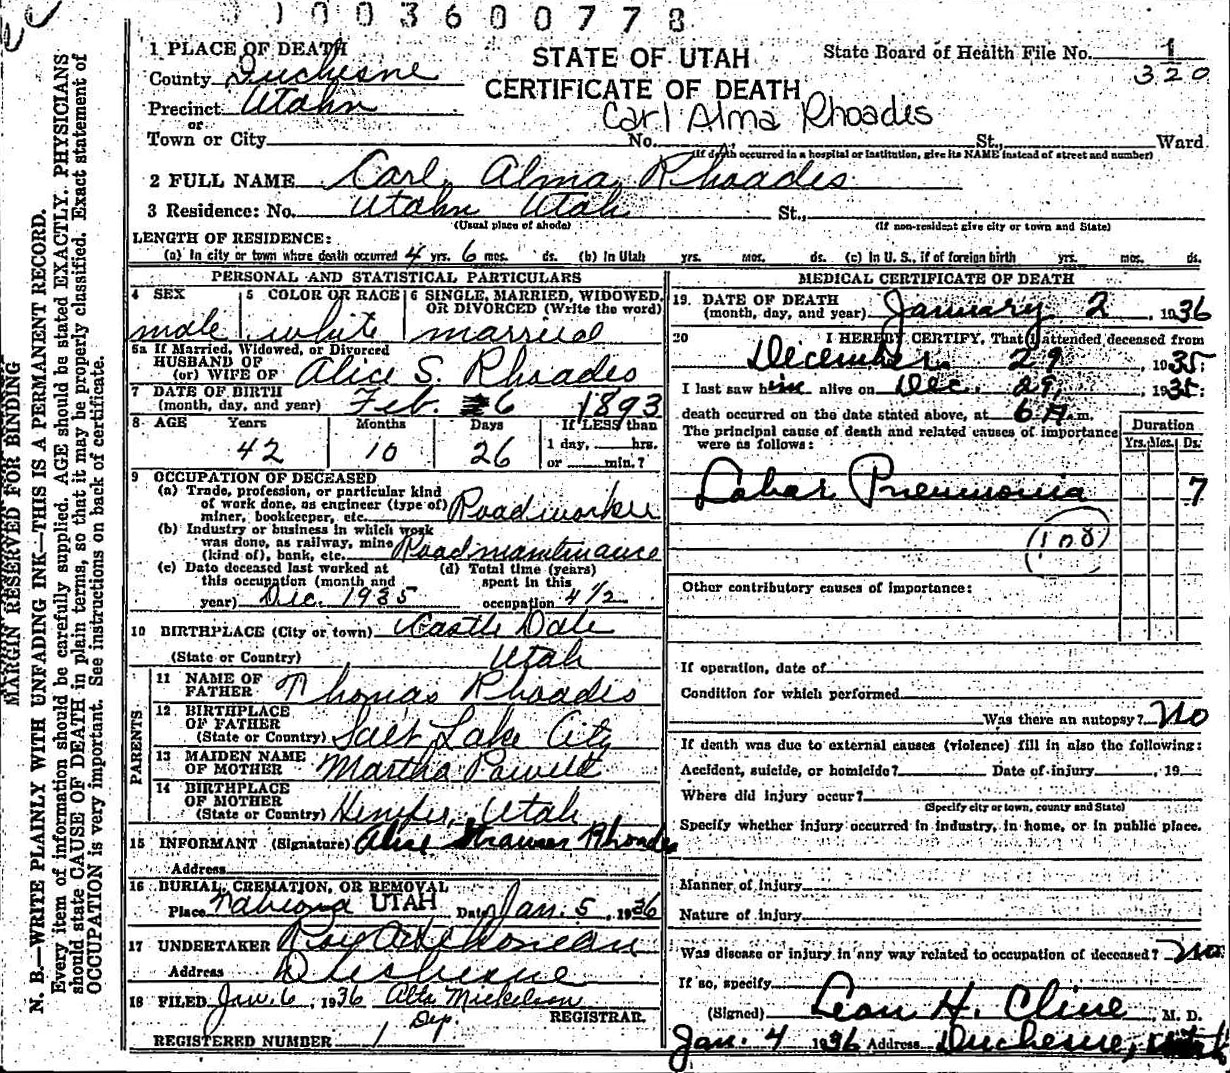 003600778
STATE OF UTAH
CERTIFICATE OF DEATH
State Board of Health File No. 1
320
Carl Alma Rhoades
1 PLACE OF DEATH
County Duchesne
Precinct Utahn
or
Town or City No. St., Ward
(If death occurred in a hospital or institution, give its NAME instead of street and number)
2 FULL NAME Carl Alma Rhoades
3 Residence: No. Utahn Utah St.,
(Usual place of abode) (If non-resident give city or town and State)
LENGTH OF RESIDENCE:
(a) In city or town where death occurred 4 yrs. 6 mos. ds. (b) In Utah yrs. mos. ds. (c) In U. S., if of foreign birth yrs. mos. ds.
PERSONAL AND STATISTICAL PARTICULARS
4 SEX 5 COLOR OR RACE 6 SINGLE, MARRIED, WIDOWED, OR DIVORCED (Write the word)
male white married
6a If Married, Widowed, or Divorced
HUSBAND OF
(or) WIFE OF Alice S. Rhoades
7 DATE OF BIRTH
(month, day, and year) Feb. 6 1893
8 AGE Years Months Days If LESS than
42 10 26 1 day, hrs.
or min.?
9 OCCUPATION OF DECEASED
(a) Trade, profession, or particular kind
of work done, as engineer (type of)
miner, bookkeeper, etc. Road worker
(b) Industry or business in which work
was done, as railway, mine
(kind of), bank, etc. Road maintinance
(c) Date deceased last worked at (d) Total time (years)
this occupation (month and spent in this
year) Dec. 1935 occupation 4 1/2
10 BIRTHPLACE (City or town) Castle Dale
(State or Country) Utah
PARENTS
11 NAME OF
FATHER Thomas Rhoades
12 BIRTHPLACE
OF FATHER
(State or Country) Salt Lake City
13 MAIDEN NAME
OF MOTHER Martha
14 BIRTHPLACE
OF MOTHER
(State or Country) Utah
15 INFORMANT (Signature) Alice Rhoades
Address
16 BURIAL, CREMATION, OR REMOVAL
Place Tabiona UTAH Date Jan. 5, 1936
17 UNDERTAKER Roy
Address Duchesne
18 FILED Jan. 6, 1936 Alta Mickelson
Dep. REGISTRAR.
REGISTERED NUMBER 1
MEDICAL CERTIFICATE OF DEATH
19. DATE OF DEATH
(month, day, and year) January 2, 1936
20 I HEREBY CERTIFY, That I attended deceased from
December 29, 1935
I last saw him alive on Dec. 29, 1935
death occurred on the date stated above, at 6 A. m.
The principal cause of death and related causes of importance
were as follows:
Duration
Yrs. Mos. Ds.
Lobar Pneumonia 7
108
Other contributory causes of importance:
If operation, date of
Condition for which performed
Was there an autopsy? No
If death was due to external causes (violence) fill in also the following:
Accident, suicide, or homicide? Date of injury , 19
Where did injury occur?
(Specify city or town, county and State)
Specify whether injury occurred in industry, in home, or in public place.
Manner of injury
Nature of injury
Was disease or injury in any way related to occupation of deceased? No
If so, specify
(Signed) Leon H. Cline, M. D.
Jan. 4 1936 Address Duchesne, Utah
MARGIN RESERVED FOR BINDING
N. B.—WRITE PLAINLY WITH UNFADING INK—THIS IS A PERMANENT RECORD.
Every item of information should be carefully supplied. AGE should be stated EXACTLY. PHYSICIANS
should state CAUSE OF DEATH in plain terms, so that it may be properly classified. Exact statement of
OCCUPATION is very important. See instructions on back of certificate.